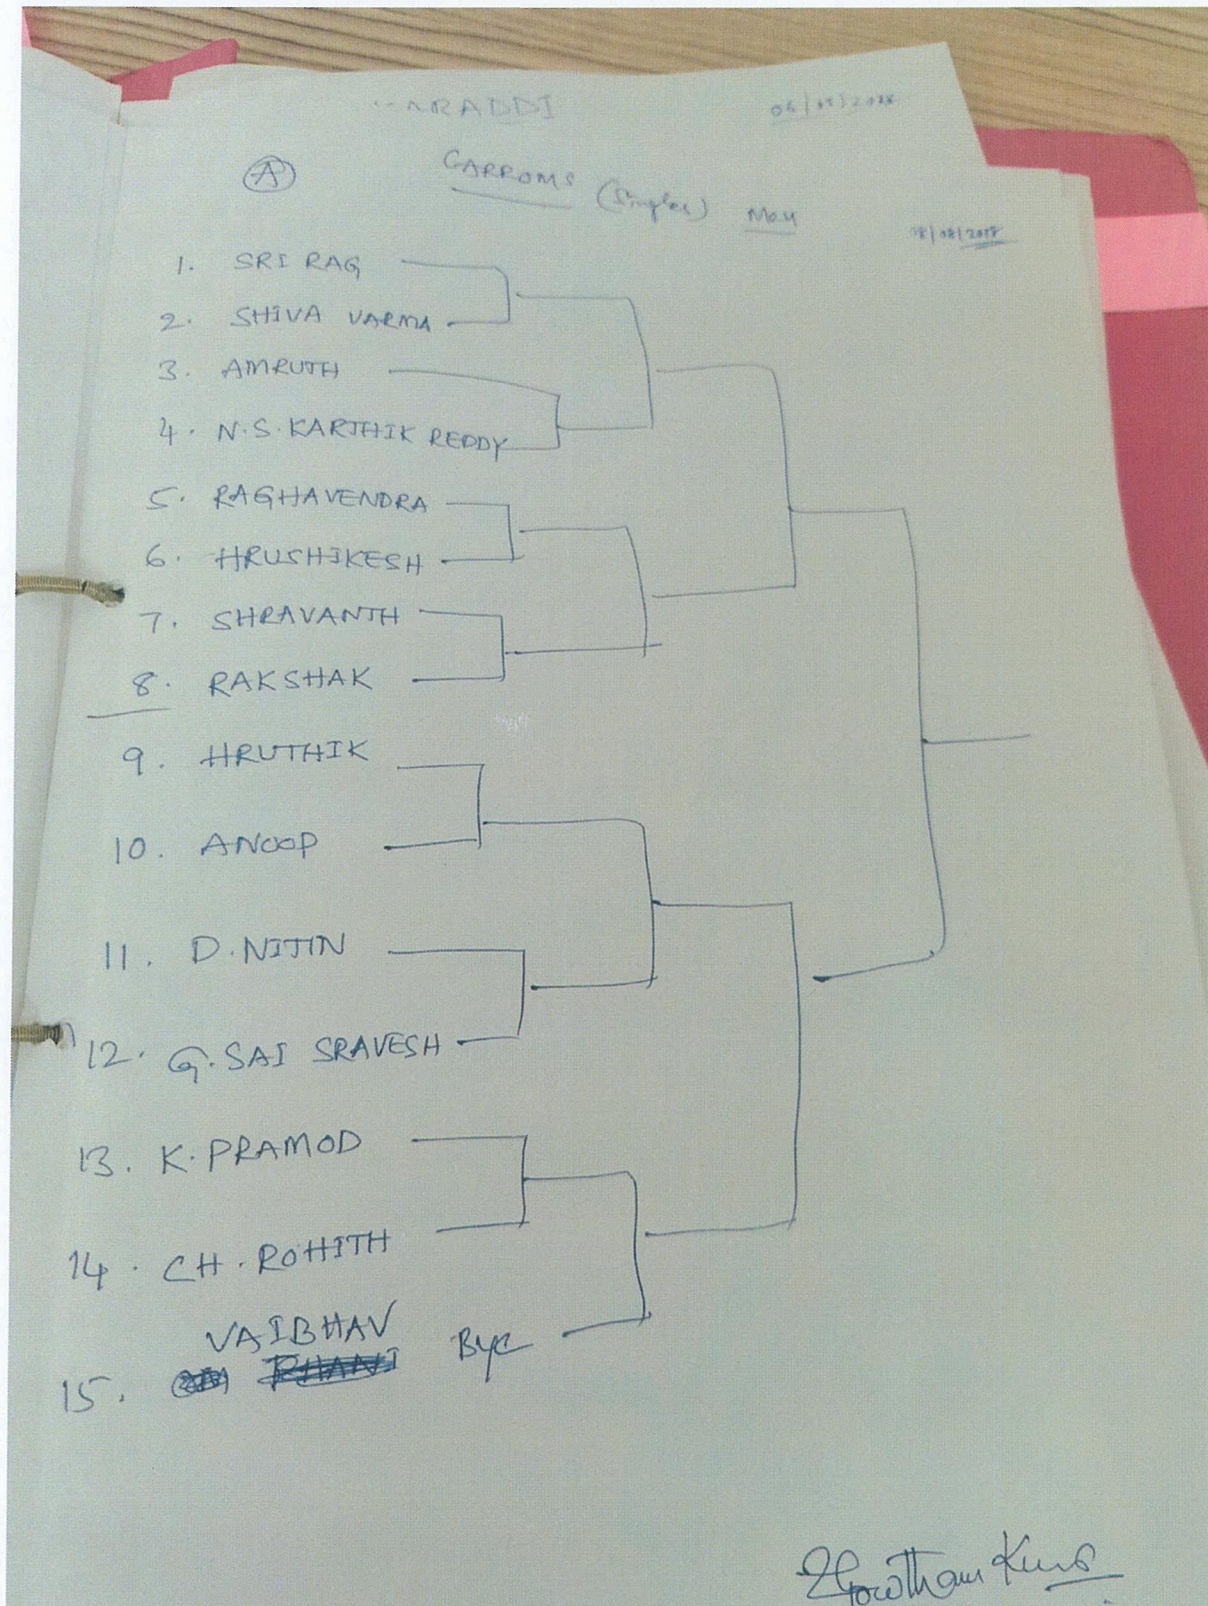 A
CARROMS (Singles) Men
18/08/2018
1. SRI RAG
2. SHIVA VARMA
3. AMRUTH
4. N.S. KARTHIK REDDY
5. RAGHAVENDRA
6. HRUSHIKESH
7. SHRAVANTH
8. RAKSHAK
9. HRUTHIK
10. ANOOP
11. D. NITIN
12. G. SAI SRAVESH
13. K. PRAMOD
14. CH. ROHITH
VAIBHAV Bye
15.